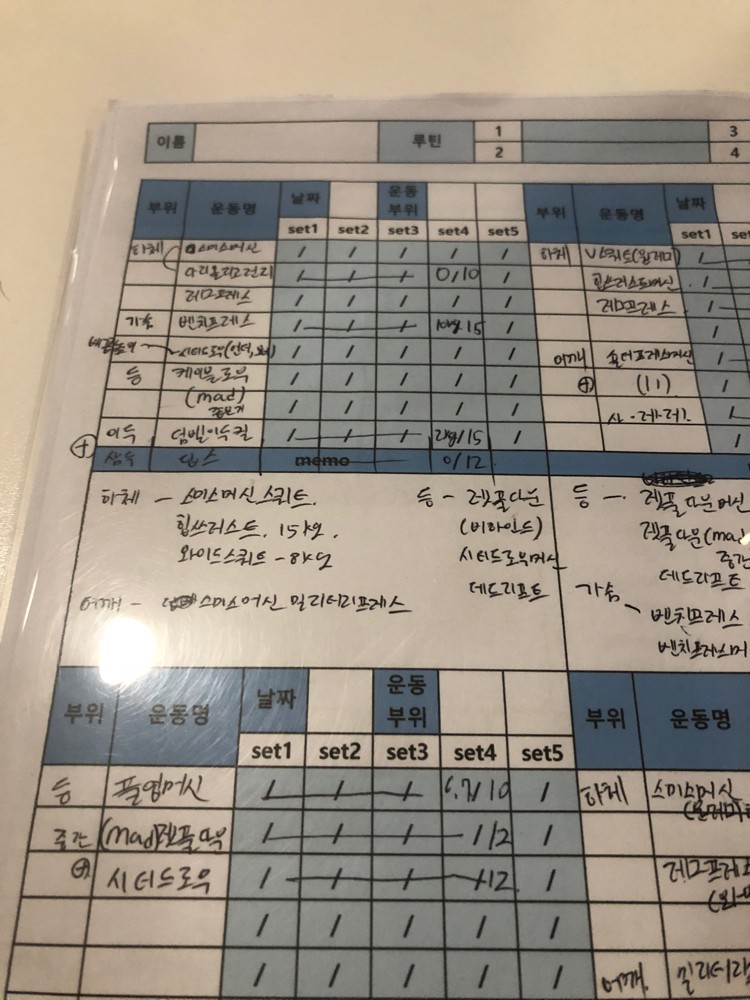 이름 루틴 1 3
2 4
부위 운동명 날짜 운동 부위 부위 운동명 날짜
set1 set2 set3 set4 set5 set1
하체 스미스머신 / / / / / 하체 V스쿼트
/ / / 0/10 / 힙쓰러스트머신
레그프레스 / / / / / 레그프레스
가슴 벤치프레스 / / / 15 /
시티드로우 / / / / / 어깨 숄더프레스머신
등 케이블로우 / / / / / + (11)
(mad) / / / / / 사·레·레·
+ 이두 덤벨이두컬 / / / 2kg/15 /
삼두 딥스 memo 0/12
하체 - 스미스머신스쿼트.
힙쓰러스트. 15kg.
와이드스쿼트 - 8kg
어깨 - 스미스머신 밀리터리프레스
등 - 렛풀다운
(비하인드)
시티드로우머신
데드리프트
등 - 렛풀다운머신
렛풀다운(mad
중간
데드리프트
가슴 벤치프레스
벤치프레스머
부위 운동명 날짜 운동 부위 부위 운동명
set1 set2 set3 set4 set5
등 풀업머신 / / / 6.7/10 / 하체 스미스머신
중간 (mad)렛풀다운 / / / /12 /
+ 시티드로우 / / / /12 / 레그프레스
/ / / / /
/ / / / / 어깨. 밀리터리